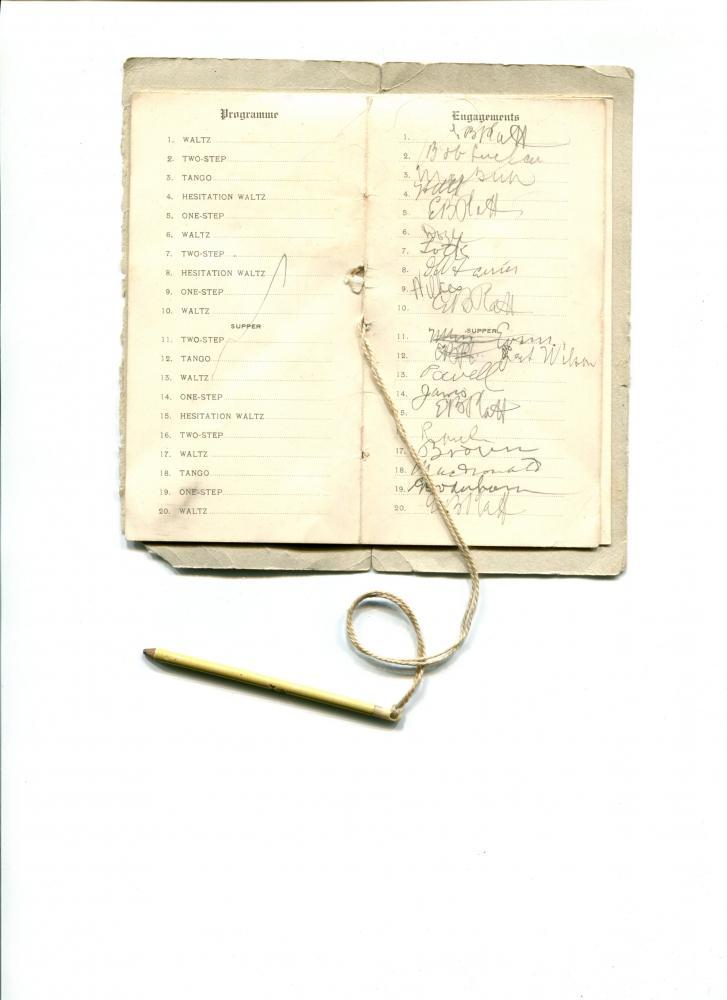 Programme
1. WALTZ
2. TWO-STEP
3. TANGO
4. HESITATION WALTZ
5. ONE-STEP
6. WALTZ
7. TWO-STEP
8. HESITATION WALTZ
9. ONE-STEP
10. WALTZ
SUPPER
11. TWO-STEP
12. TANGO
13. WALTZ
14. ONE-STEP
15. HESITATION WALTZ
16. TWO-STEP
17. WALTZ
18. TANGO
19. ONE-STEP
20. WALTZ
Engagements
1. EB Platt
2. Bob
3.
4. Hall
5. EB Platt
6.
7.
8.
9.
10. EB Platt
SUPPER
11. Evans
12. Bert Wilson
13. Powell
14. James
5. EB Platt
17. Brown
18. Macdonald
19.
20. EB Platt